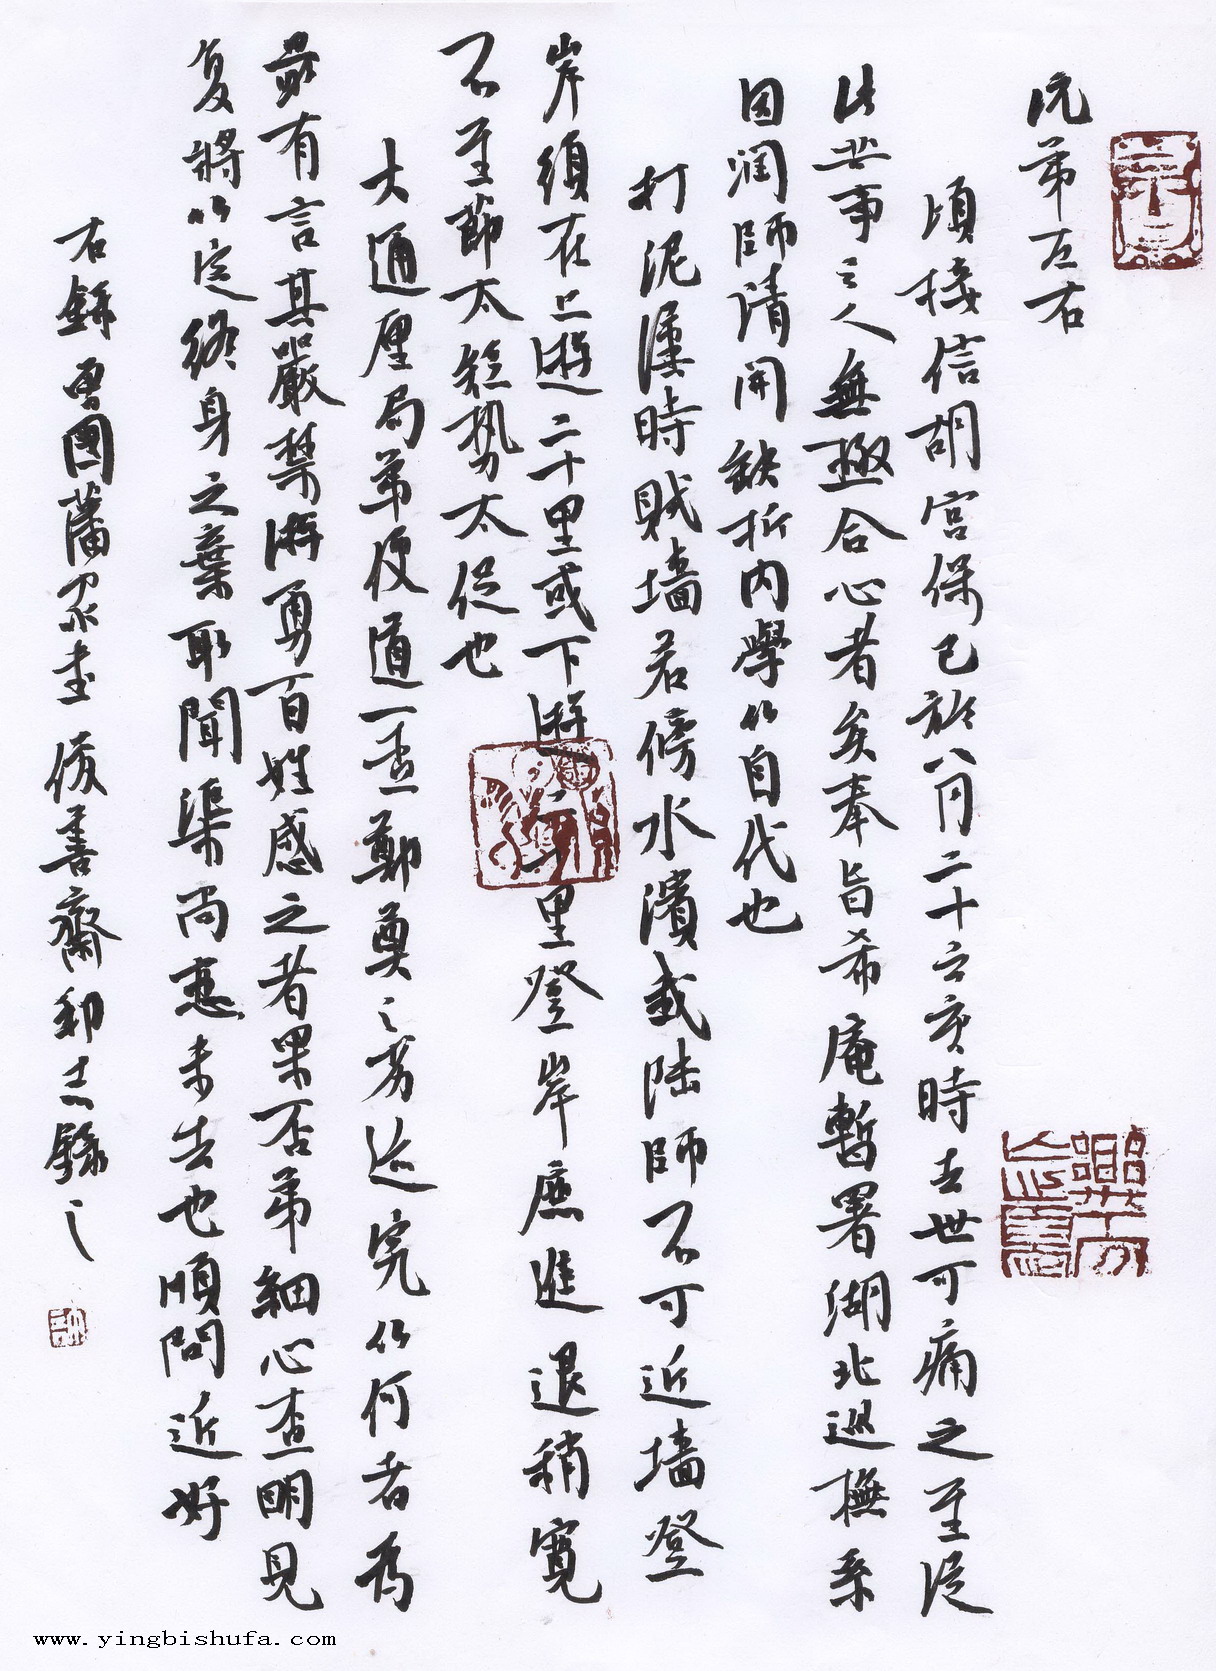 沅弟左右
頃接信胡宮保已於八月二十六亥時去世可痛之至從
此共事之人無極合心者矣奉旨希庵暫署湖北巡撫系
因潤師請開缺折內舉以自代也
打泥漢時賊墙若傍水濱我陸師不可近墙登
岸須在上遊二十里或下遊二十里登岸庶進退稍寬
不至節太短势太促也
大通厘局弟便道一查鄭奠之劣迹究以何者為
最有言其嚴禁遊勇百姓感之者果否弟細心查明見
复將以定終身之棄取聞渠尚未去也順問近好
右錄曾國藩家書 俊善齋 錄之
www.yingbishufa.com